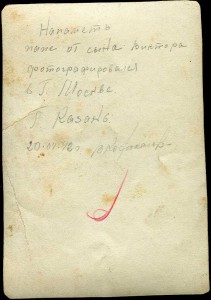 На память
папе от сына Виктора
фотографировался
в г. Москве
г. Казань